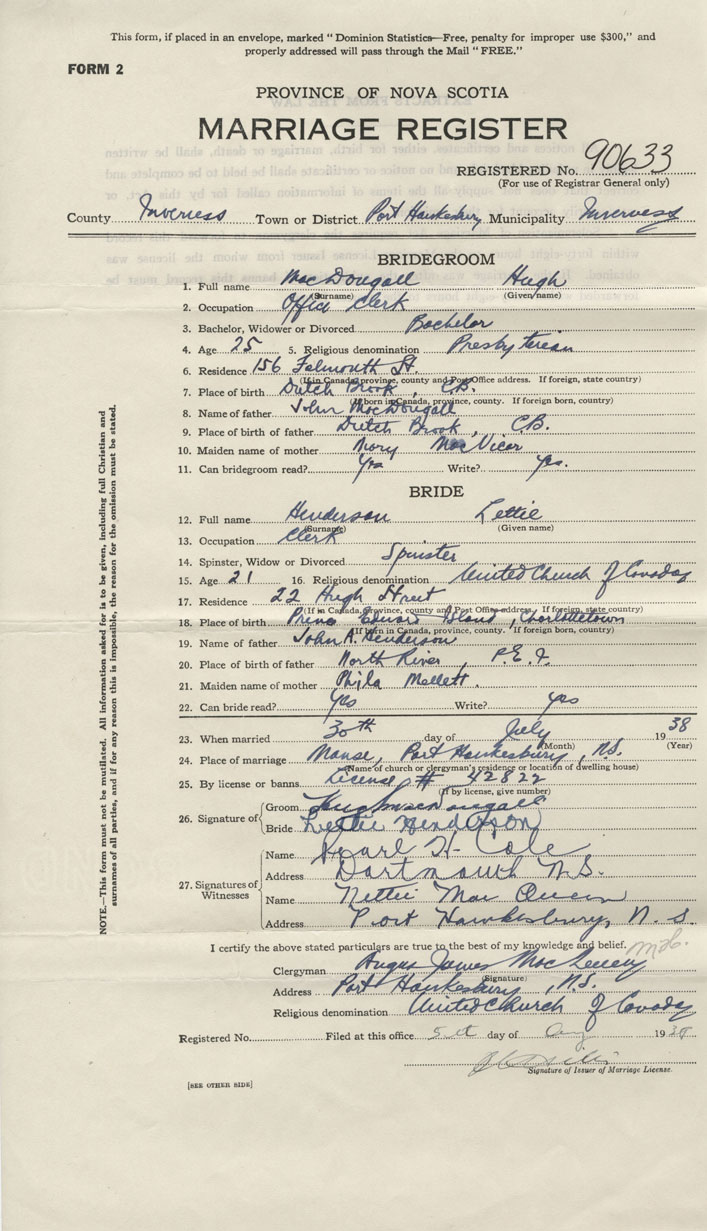 This form, if placed in an envelope, marked "Dominion Statistics—Free, penalty for improper use $300," and
properly addressed will pass through the Mail "FREE."
FORM 2
PROVINCE OF NOVA SCOTIA
MARRIAGE REGISTER
REGISTERED No. 90633
(For use of Registrar General only)
County Inverness Town or District Port Hawkesbury Municipality Inverness
BRIDEGROOM
1. Full name MacDougall Hugh
(Surname) (Given name)
2. Occupation Office Clerk
3. Bachelor, Widower or Divorced Bachelor
4. Age 25 5. Religious denomination Presbyterian
6. Residence 156 Falmouth St.
(If in Canada, province, county and Post Office address. If foreign, state country)
7. Place of birth Dutch Brook, C.B.
(If born in Canada, province, county. If foreign born, country)
8. Name of father John MacDougall
9. Place of birth of father Dutch Brook, C.B.
10. Maiden name of mother Mary MacVicar
11. Can bridegroom read? Yes Write? Yes.
BRIDE
12. Full name Henderson Lettie
(Surname) (Given name)
13. Occupation Clerk
14. Spinster, Widow or Divorced Spinster
15. Age 21 16. Religious denomination United Church of Canada
17. Residence 22 Hugh Street
(If in Canada, province, county and Post Office address. If foreign, state country)
18. Place of birth Prince Edward Island, Charlottetown
(If born in Canada, province, county. If foreign born, country)
19. Name of father John A. Henderson
20. Place of birth of father North River, P.E.I.
21. Maiden name of mother Phila Mellett.
22. Can bride read? Yes Write? Yes
23. When married 30th day of July 1938
(Month) (Year)
24. Place of marriage Manse, Port Hawkesbury, N.S.
(Name of church or clergyman's residence or location of dwelling house)
25. By license or banns License # 42822
(If by license, give number)
26. Signature of
Groom Hugh MacDougall
Bride Lettie Henderson
27. Signatures of Witnesses
Name Pearl H. Cole
Address Dartmouth N.S.
Name Nettie MacQueen
Address Port Hawkesbury, N.S.
I certify the above stated particulars are true to the best of my knowledge and belief.
Clergyman Angus James Mac
(Signature)
Address Port Hawkesbury, N.S.
Religious denomination United Church of Canada
Registered No. Filed at this office 5th day of Aug 1938
Signature of Issuer of Marriage License.
[SEE OTHER SIDE]
NOTE.—This form must not be mutilated. All information asked for is to be given, including full Christian and
surnames of all parties, and if for any reason this is impossible, the reason for the omission must be stated.